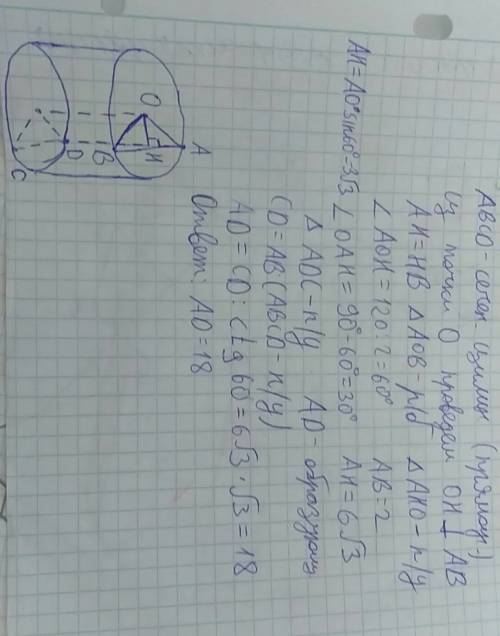 ABCD - сечен. цилин. (прямоуг.)
Из точки О проведем OH ⊥ AB
AH = HB △AOB - р/б △AHO - п/у
∠AOH = 120 : 2 = 60° AB = 2
AH = AO * sin60° = 3√3 ∠OAH = 90° - 60° = 30° AH = 6√3
△ADC - п/у AD - образующ
CD = AB (ABCD - п/у)
AD = CD : ctg 60 = 6√3 · √3 = 18
Ответ: AD = 18
O
H
A
B
D
C